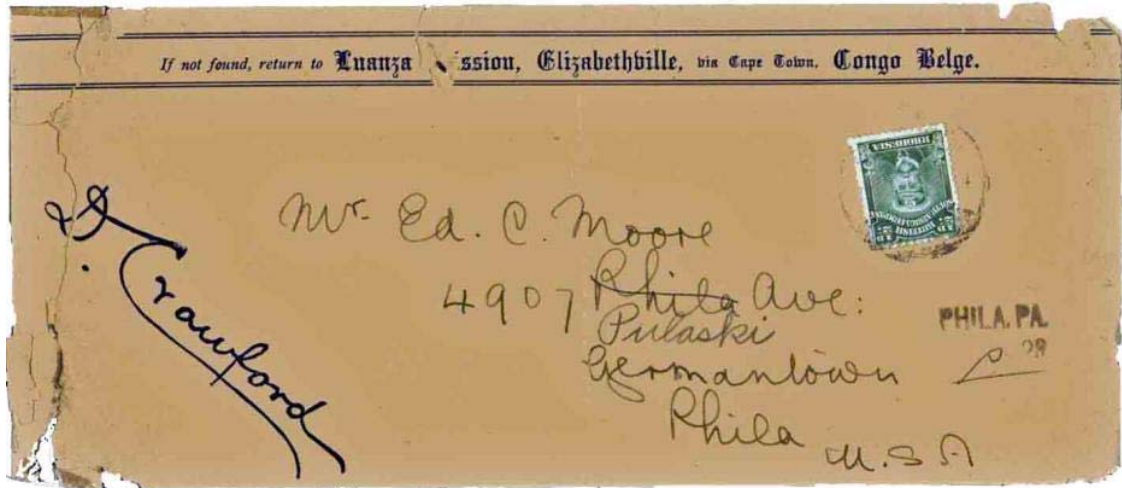 If not found, return to Luanza ssion, Elizabethville, via Cape Town, Congo Belge.
RHODESIA
BRITISH
D. Crawford
Mr. Ed. C. Moore
4907 Phila Ave:
Pulaski
Germantown
Phila
U.S.A
PHILA. PA.